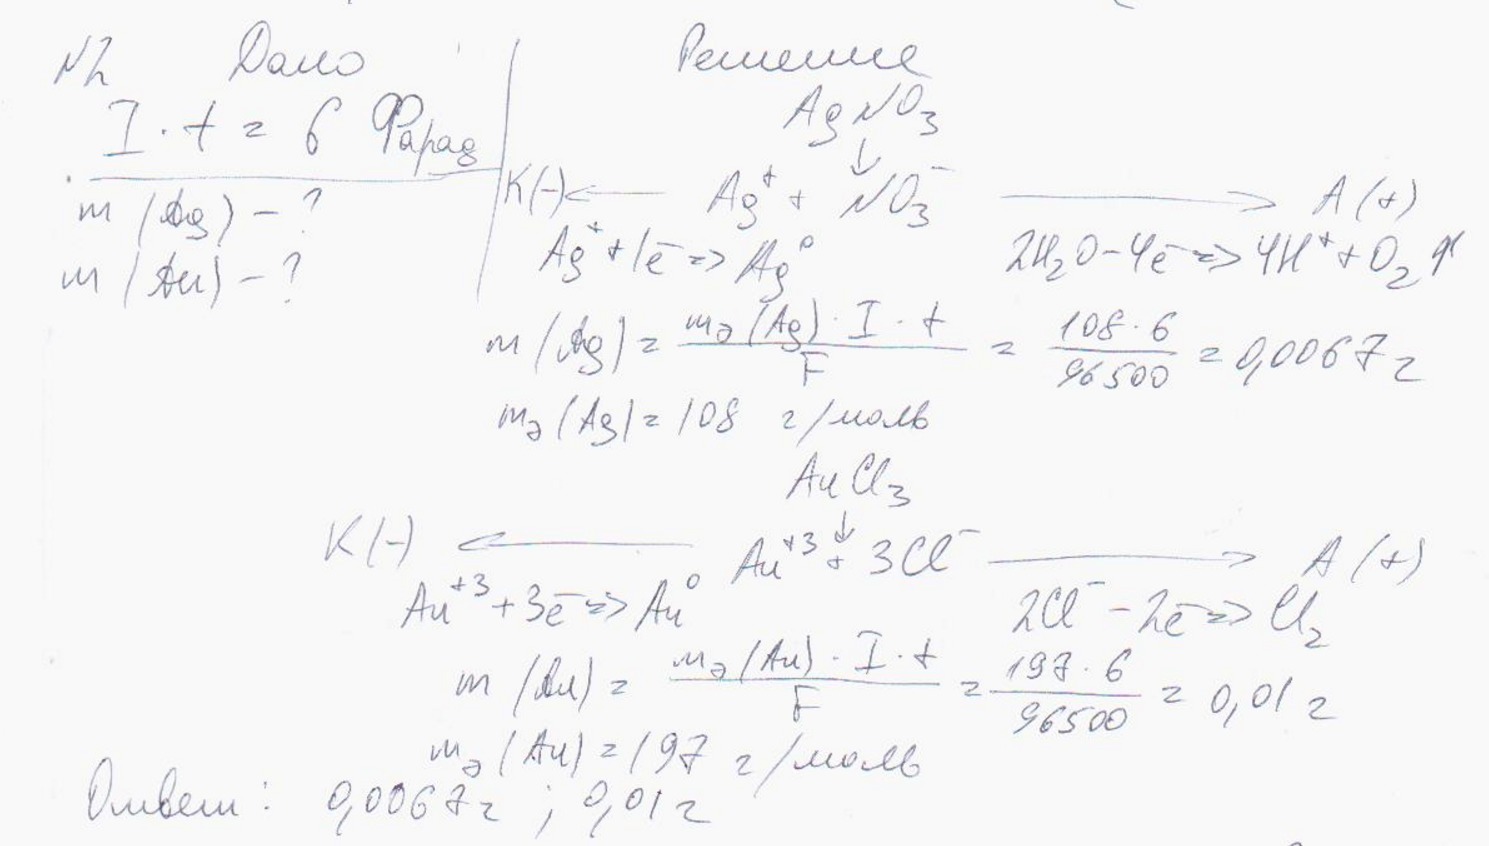 N2 Дано
I · t = 6 Фарад
m (Ag) - ?
m (Au) - ?
Решение
AgNO₃
↓
K(-) ← Ag⁺ + NO₃⁻ → A (+)
Ag⁺ + 1e⁻ => Ag⁰ 2H₂O - 4e⁻ => 4H⁺ + O₂ ↑
m (Ag) = mэ (Ag) · I · t / F = 108 · 6 / 96500 = 0,0067 г
mэ (Ag) = 108 г/моль
AuCl₃
↓
K (-) ← Au⁺³ + 3Cl⁻ → A (+)
Au⁺³ + 3e⁻ => Au⁰ 2Cl⁻ - 2e⁻ => Cl₂
m (Au) = mэ (Au) · I · t / F = 197 · 6 / 96500 = 0,01 г
mэ (Au) = 197 г/моль
Ответ : 0,0067 г ; 0,01 г